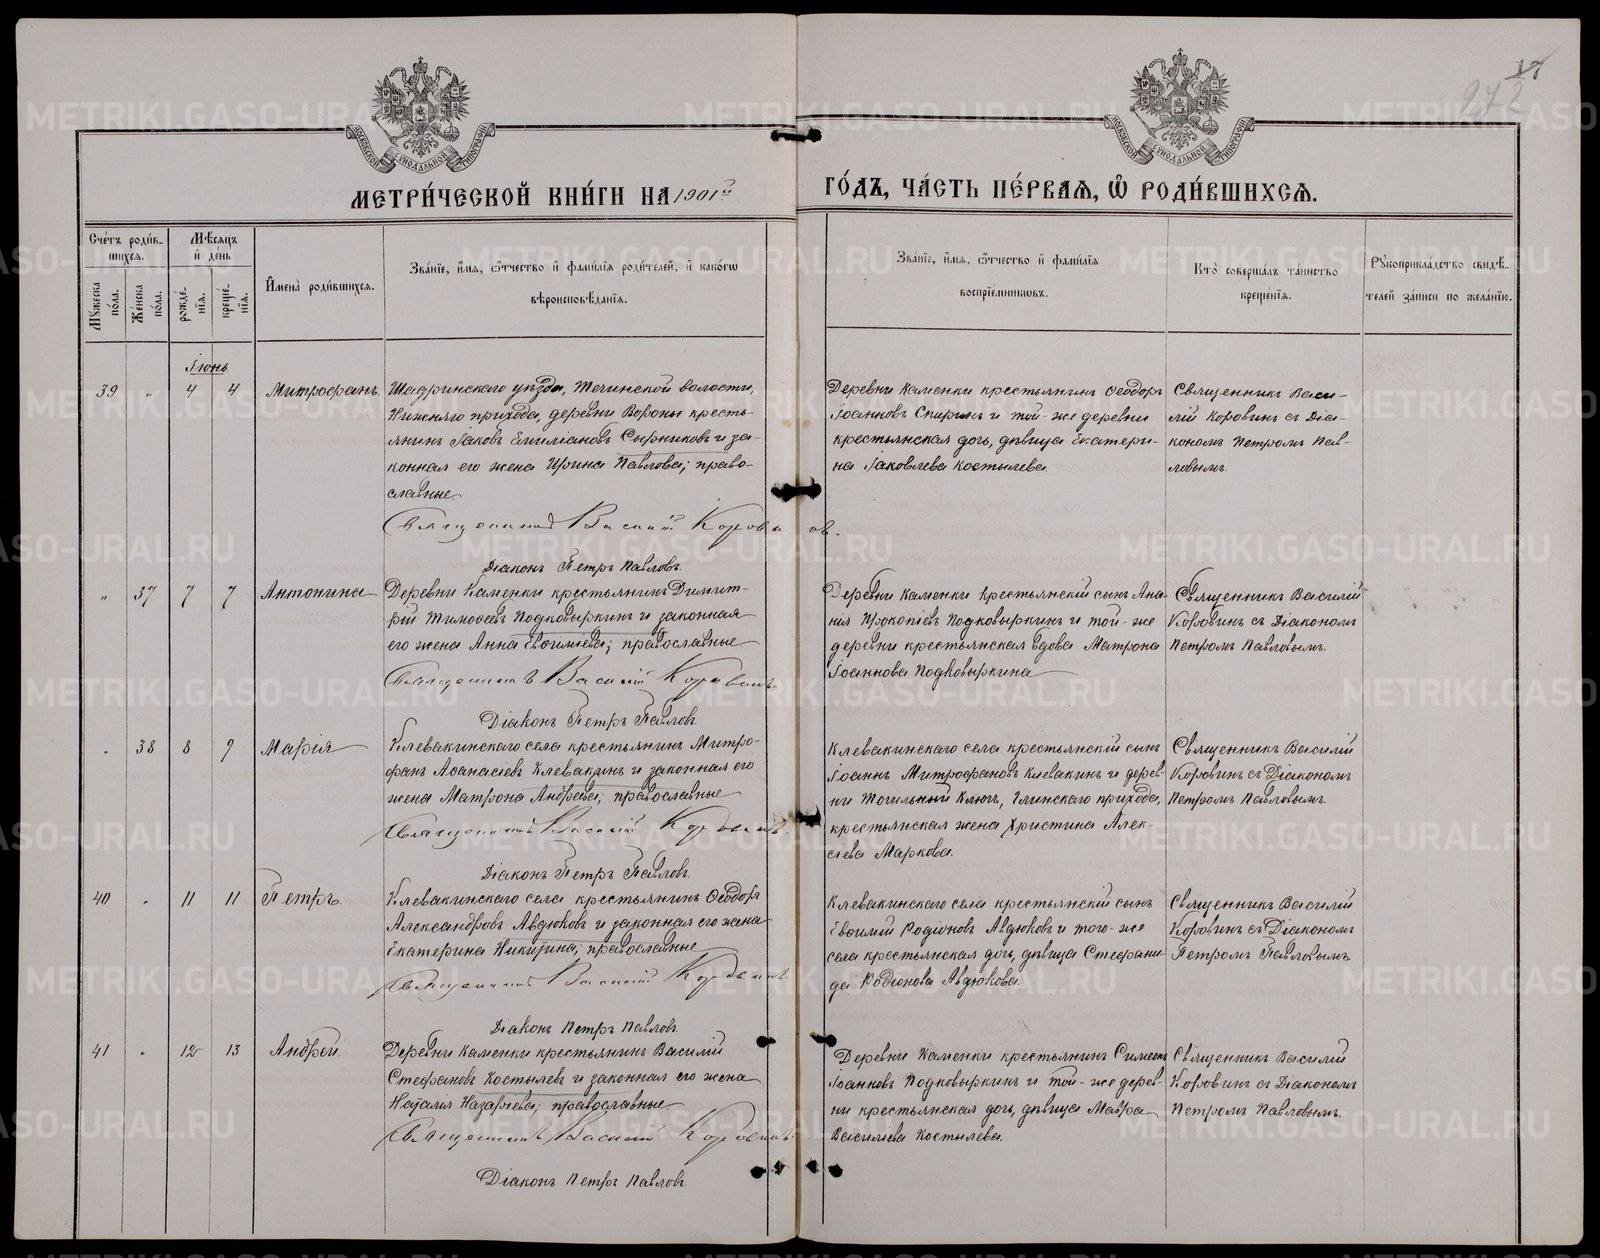 17
272
МОСКОВСКОЙ СѴНОДАЛЬНОЙ ТИПОГРАФІИ
МОСКОВСКОЙ СѴНОДАЛЬНОЙ ТИПОГРАФІИ
МЕТРИ́ЧЕСКОЙ КНИ́ГИ НА 1901й ГО́ДЪ, ЧА́СТЬ ПЕ́РВАѦ, Ѡ҆ РОДИ́ВШИХСѦ.
Сче́тъ роди́в-
шихсѧ.
Мꙋ́жеска по́ла.
Же́нска по́ла.
Мѣ́сѧцъ
и҆ де́нь
рожде́-
нїѧ.
креще́-
нїѧ.
И҆мена̀ роди́вшихсѧ.
Зва́нїе, и҆́мѧ, ѻ҆́тчество и҆ фами́лїѧ роди́телей, и҆ како́гѡ
вѣроисповѣ́данїѧ.
Зва́нїе, и҆́мѧ, ѻ҆́тчество и҆ фами́лїѧ
воспрїе́мниковъ.
Кто̀ соверша́лъ та́инство
креще́нїѧ.
Рꙋкоприкла́дство свидѣ́-
телей за́писи по жела́нїю.
Іюнь
39 „ 4 4 Митрофанъ.
Шадринскаго уѣзда, Течинской волости,
Нижняго прихода, деревни Вороны кресть-
янинъ Іаковъ Емиліановъ Сырниковъ и за-
конная его жена Ирина Павлова; право-
славные.
Священникъ Василій Коровинъ.
Діаконъ Петръ Павловъ.
Деревни Каменки крестьянинъ Ѳеодоръ
Іоанновъ Спиринъ и той-же деревни
крестьянская дочь, дѣвица Екатери-
на Іаковлева Костылева.
Священникъ Васи-
лій Коровинъ съ Діа-
кономъ Петромъ Пав-
ловымъ.
„ 37 7 7 Антонина
Деревни Каменки крестьянинъ Димит-
рій Тимоѳеевъ Подковыркинъ и законная
его жена Анна Евѳиміева; православные
Священникъ Василій Коровинъ.
Діаконъ Петръ Павловъ.
Деревни Каменки крестьянскій сынъ Ана-
нія Прокопіевъ Подковыркинъ и той-же
деревни крестьянская вдова Матрона
Іоаннова Подковыркина
Священникъ Василій
Коровинъ съ Діакономъ
Петромъ Павловымъ.
„ 38 8 9 Марія
Клевакинскаго села крестьянинъ Митро-
фанъ Аѳанасіевъ Клевакинъ и законная его
жена Матрона Андреева; православные
Священникъ Василій Коровинъ.
Діаконъ Петръ Павловъ.
Клевакинскаго села крестьянскій сынъ
Іоаннъ Митрофановъ Клевакинъ и дерев-
ни Точильный Ключъ, Глинскаго прихода,
крестьянская жена Христина Алек-
сіева Маркова.
Священникъ Василій
Коровинъ съ Діакономъ
Петромъ Павловымъ.
40 „ 11 11 Петръ.
Клевакинскаго села крестьянинъ Ѳеодоръ
Александровъ Авдюковъ и законная его жена
Екатерина Никитина; православные
Священникъ Василій Коровинъ.
Діаконъ Петръ Павловъ.
Клевакинскаго села крестьянскій сынъ
Евѳимій Родіоновъ Авдюковъ и того-же
села крестьянская дочь, дѣвица Стефани-
да Родіонова Авдюкова.
Священникъ Василій
Коровинъ съ Діакономъ
Петромъ Павловымъ.
41 „ 12 13 Андрей.
Деревни Каменки крестьянинъ Василій
Стефановъ Костылевъ и законная его жена
Наталія Назаріева; православные
Священникъ Василій Коровинъ.
Діаконъ Петръ Павловъ.
Деревни Каменки крестьянинъ Симеонъ
Іоанновъ Подковыркинъ и той-же дерев-
ни крестьянская дочь, дѣвица Мавра
Василіева Костылева.
Священникъ Василій
Коровинъ съ Діакономъ
Петромъ Павловымъ.
METRIKI.GASO-URAL.RU